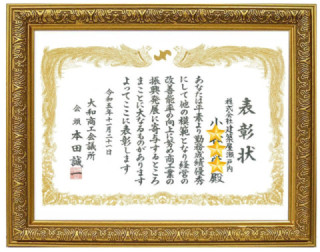 表彰状
株式会社建築屋瀬戸内
小 殿
あなたは平素より勤務成績優秀
にして他の模範となり経営の
改善能率の向上に努め商工業の
振興発展に寄与するところ
まことに大なるものがあります
よってここに表彰します
令和五年十一月二十一日
大和商工会議所
会頭 本田誠一